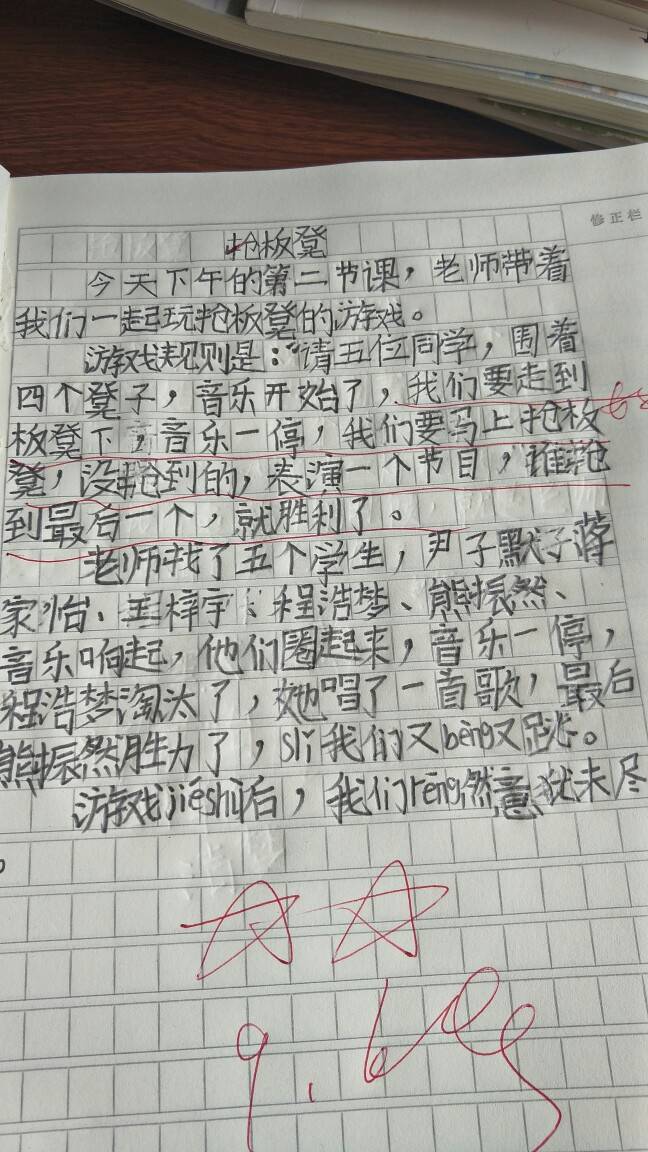 修正栏
抢板凳
今天下午的第二节课，老师带着
我们一起玩抢板凳的游戏。
游戏规则是：“请五位同学，围着
四个凳子，音乐开始了，我们要走到
板凳下，音乐一停，我们要马上抢板
凳，没抢到的，表演一个节目，谁抢
到最后一个，就胜利了。
老师找了五个学生，尹子默子蒋
家怡、王梓宇、程浩梦、熊振然、
音乐响起，他们圈起来，音乐一停，
程浩梦淘汰了，她唱了一首歌，最后
熊振然胜力了，sli我们又bèng又跳。
游戏jiéshù后，我们réng然意犹未尽